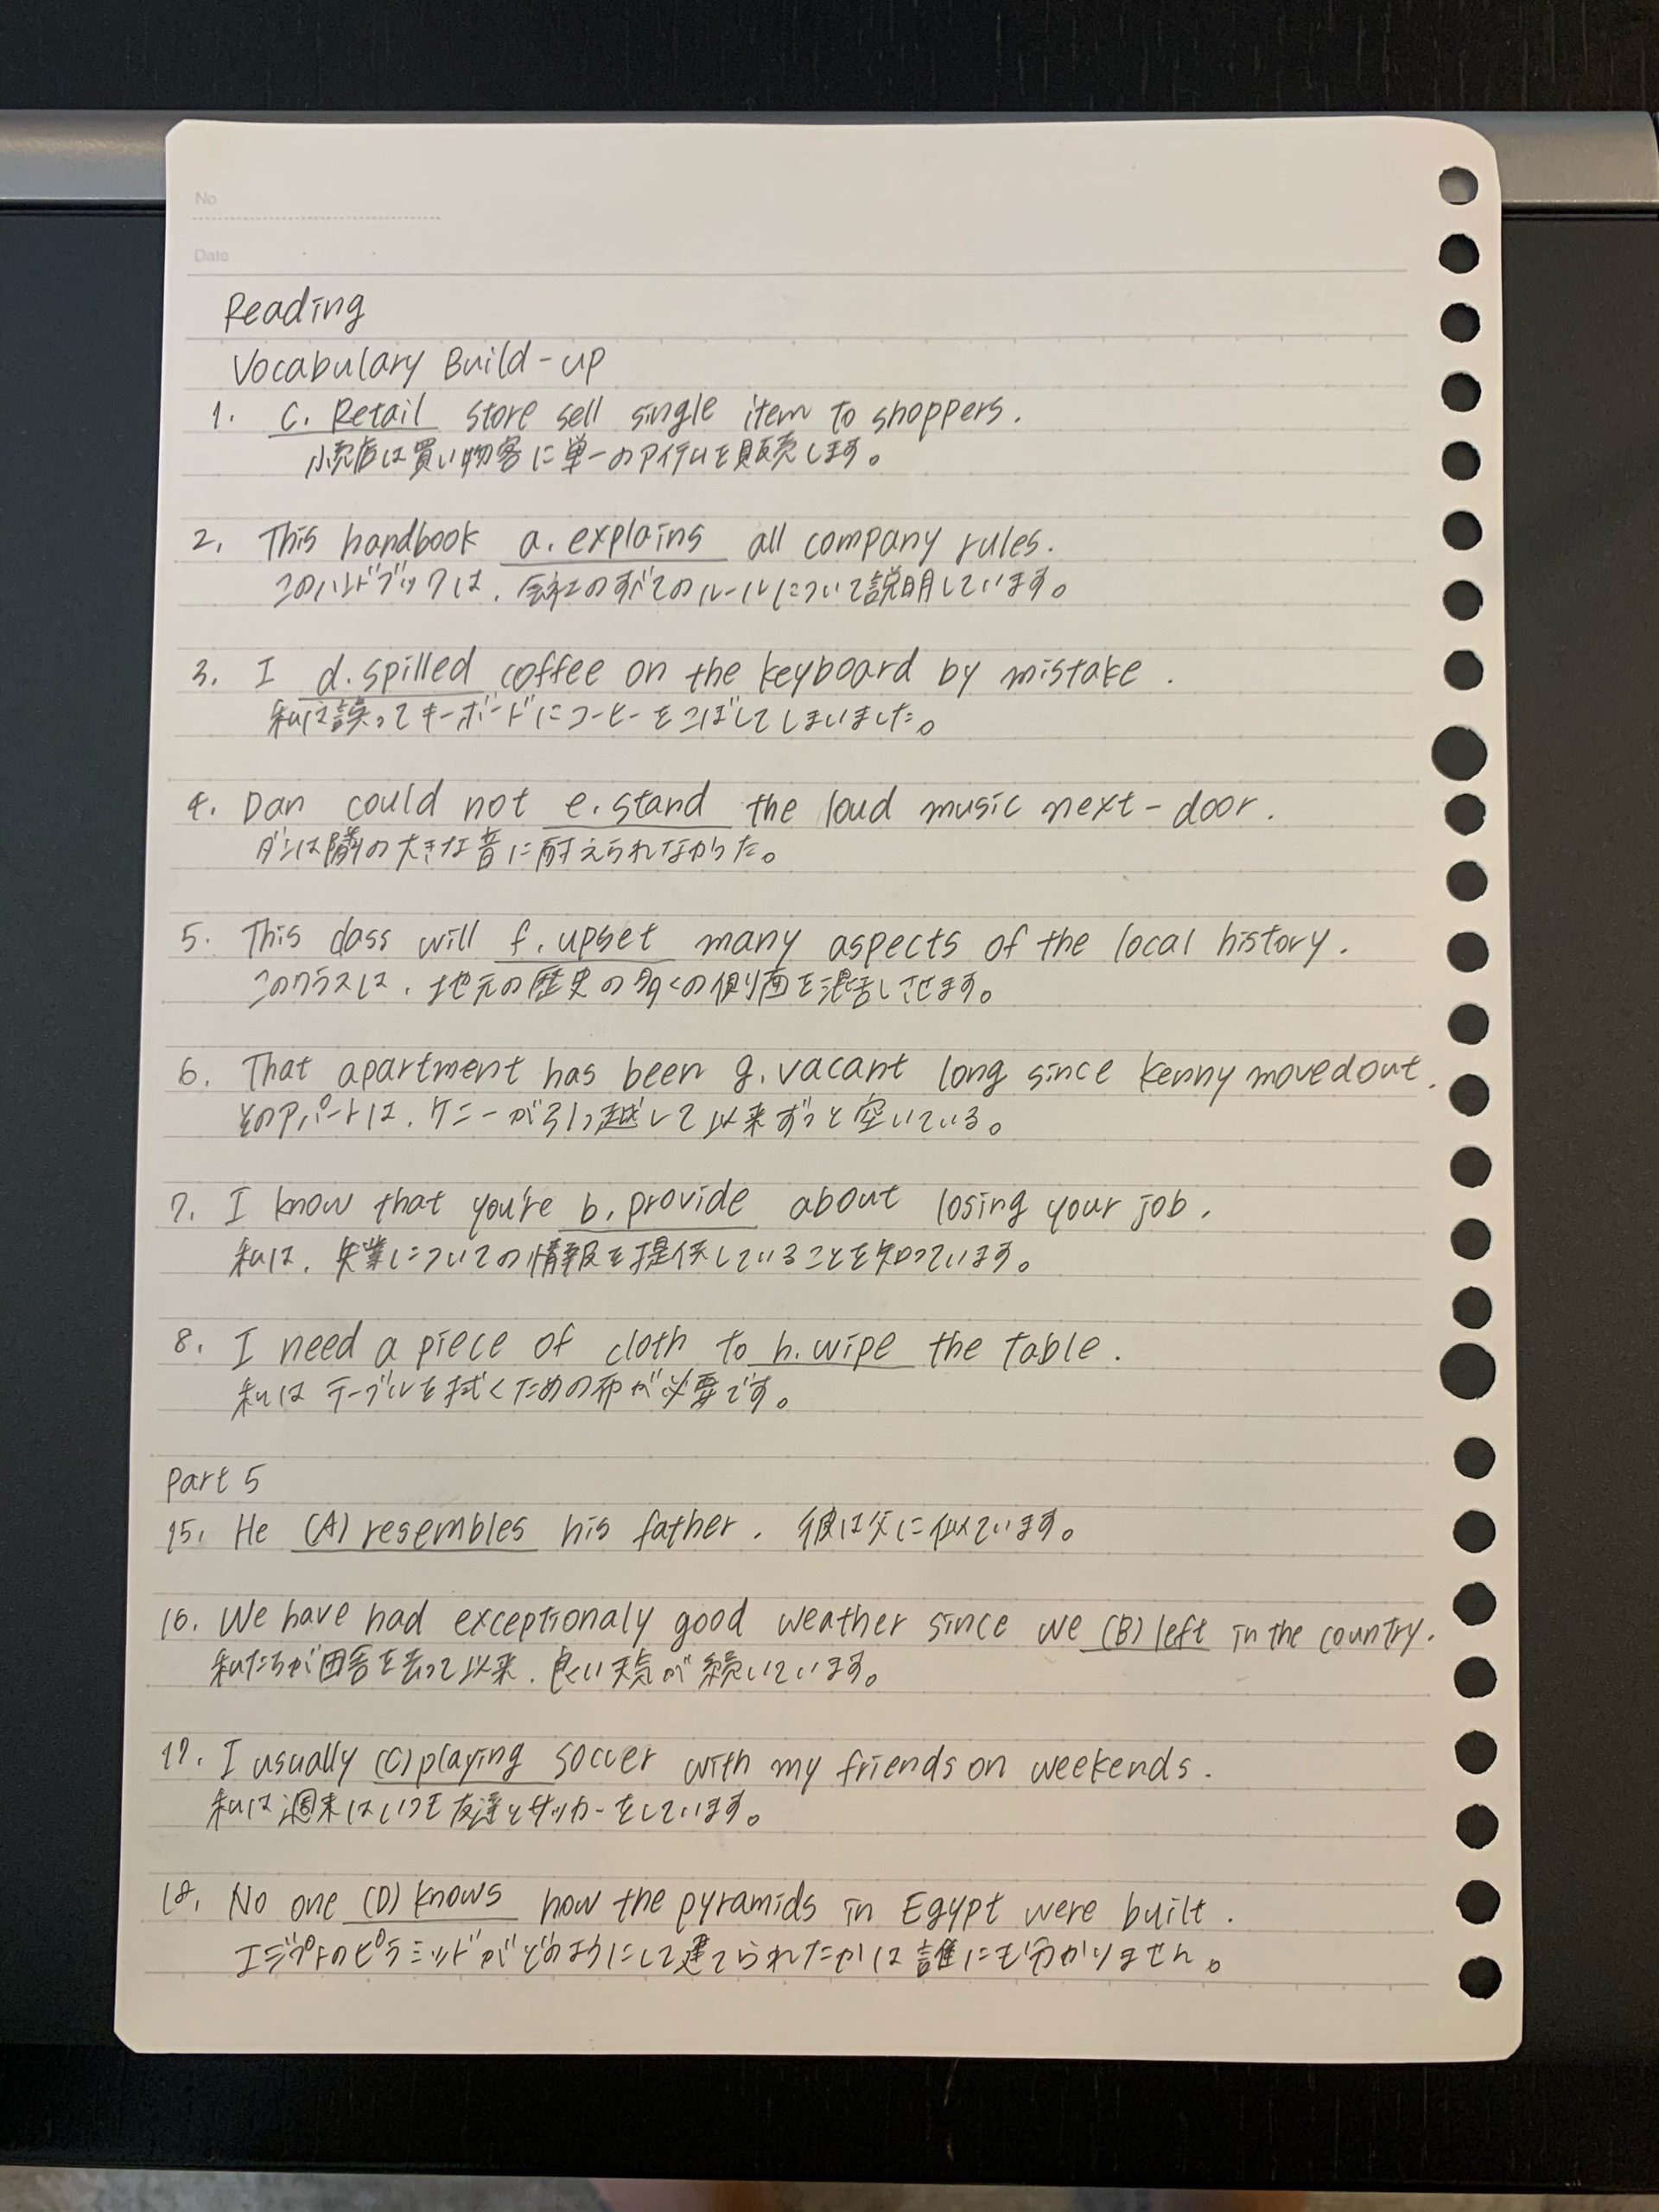 No
Date
Reading
Vocabulary Build-up
1. C. Retail store sell single item to shoppers.
小売店は買い物客に単一のアイテムを販売します。
2. This handbook a. explains all company rules.
このハンドブックは、会社のすべてのルールについて説明しています。
3. I d. spilled coffee on the keyboard by mistake.
私は誤ってキーボードにコーヒーをこぼしてしまいました。
4. Dan could not e. stand the loud music next-door.
ダンは隣の大きな音に耐えられなかった。
5. This class will f. upset many aspects of the local history.
このクラスは、地元の歴史の多くの側面を混乱させます。
6. That apartment has been g. vacant long since Kenny moved out.
そのアパートは、ケニーが引っ越して以来ずっと空いている。
7. I know that you're b. provide about losing your job.
私は、失業についての情報を提供していることを知っています。
8. I need a piece of cloth to h. wipe the table.
私はテーブルを拭くための布が必要です。
Part 5
15. He (A) resembles his father. 彼は父に似ています。
16. We have had exceptionaly good weather since we (B) left in the country.
私たちが田舎を去って以来、良い天気が続いています。
17. I usually (C) playing soccer with my friends on weekends.
私は週末はいつも友達とサッカーをしています。
18. No one (D) knows how the pyramids in Egypt were built.
エジプトのピラミッドがどのようにして建てられたかは誰にも分かりません。